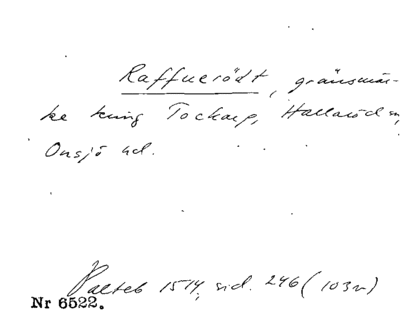 Raffnerödt, gränsmär-
ke kring Tockarp, Hallaröd sn,
Onsjö hd.
Palteb 1514, sid. 246 (103v)
Nr 6522.